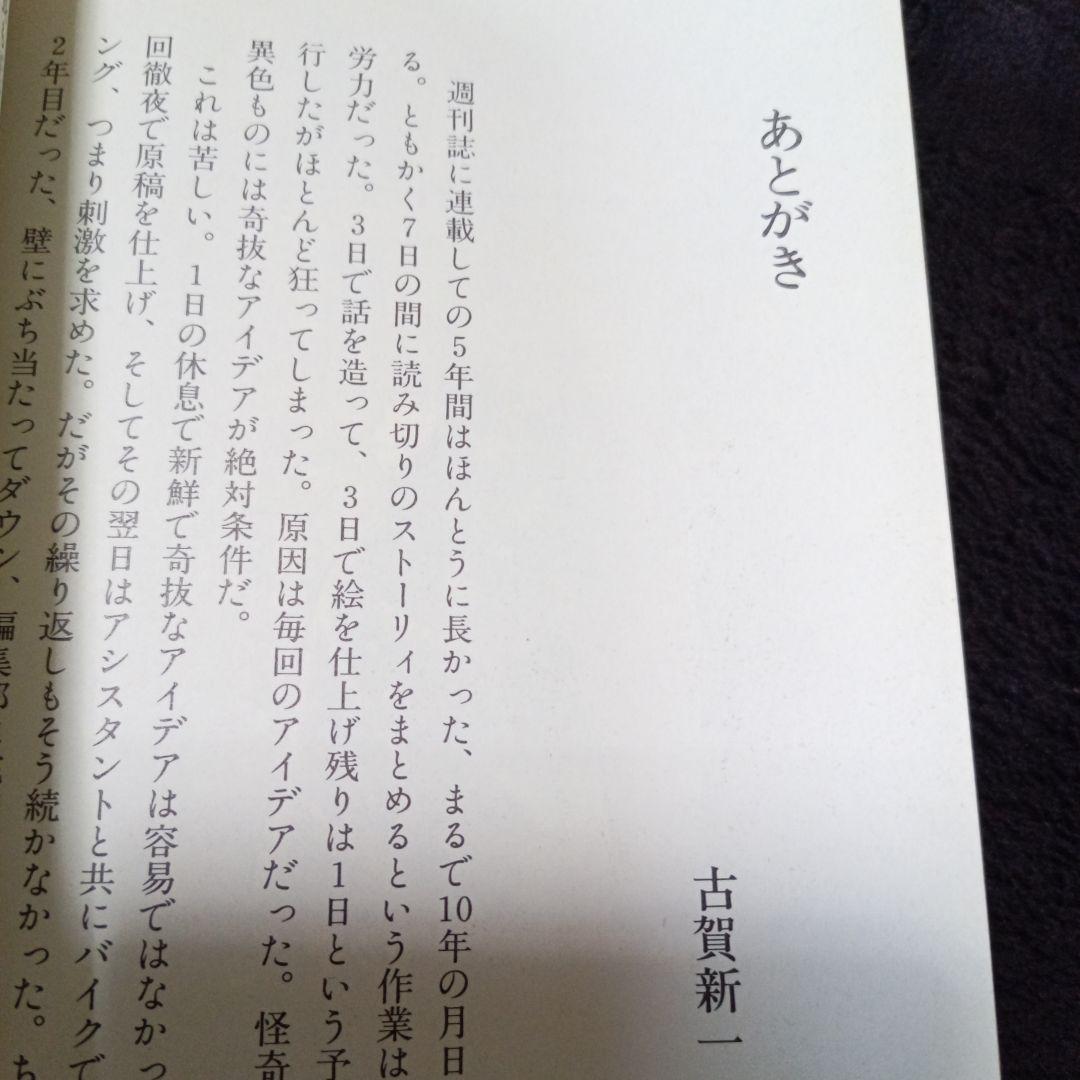 あとがき
古賀新一
週刊誌に連載しての5年間はほんとうに長かった、まるで10年の月日
る。ともかく7日の間に読み切りのストーリィをまとめるという作業は
労力だった。3日で話を造って、3日で絵を仕上げ残りは1日という予
行したがほとんど狂ってしまった。原因は毎回のアイデアだった。怪奇
異色ものには奇抜なアイデアが絶対条件だ。
これは苦しい。1日の休息で新鮮で奇抜なアイデアは容易ではなかっ
回徹夜で原稿を仕上げ、そしてその翌日はアシスタントと共にバイクで
ング、つまり刺激を求めた。だがその繰り返しもそう続かなかった。ち
2年目だった、壁にぶち当たってダウン、編集部